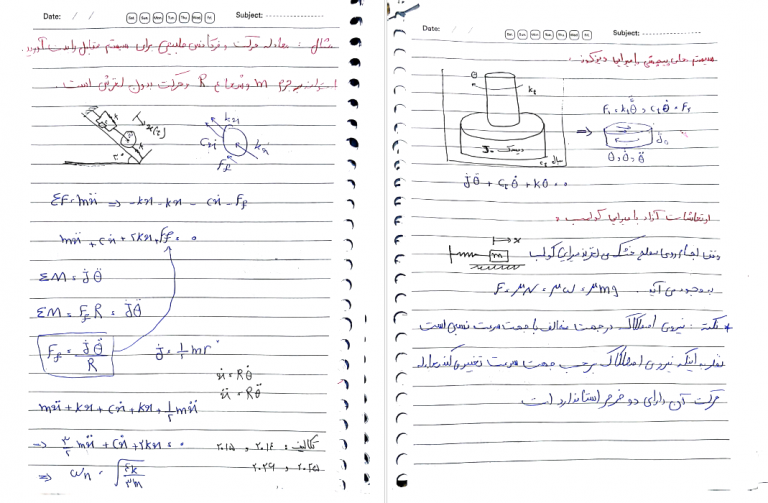 Date: / /
Sat. Sun. Mon. Tue. Wed. Thu. Fri.
Subject:
مثال: معادله حرکت و فرکانس طبیعی برای سیستم مقابل را بدست آورید.
استوانه به جرم m و شعاع R و حرکت بدون لغزش است.
k
x(t)
k
۳۰°
kx
cẋ
kx
Ff
ΣF = mẍ ⇒ -kx - kx - cẋ - Ff
mẍ + cẋ + ۲kx + Ff = ۰
ΣM = J̇θ̈
ΣM = Ff R = Jθ̈
Ff = Jθ̈ / R
J = ۱/۲ mr²
ẋ = Rθ̇
ẍ = Rθ̈
mẍ + kx + cẋ + kx + ۱/۲ mẍ
⇒ ۳/۲ mẍ + cẋ + ۲kx = ۰
تکالیف: ۲۰۱۴ و ۲۰۱۵
۲۰۲۵ و ۲۰۲۹
⇒ ωn = √(۴k/۳m)
Date: / /
Sat. Sun. Mon. Tue. Wed. Thu. Fri.
Subject:
سیستم های پیچشی با میرایی ویسکوز:
θ
kt
دیسک J₀
سیال ct
Ft = ktθ و ctθ̇ = Fr
⇒
J₀
θ و θ̇ و θ̈
Jθ̈ + ctθ̇ + kθ = ۰
ارتعاشات آزاد با میرایی کولمب:
x
m
وقتی اجسام روی سطح خشک می لغزند میرایی کولمب
به وجود می آید. F = μN = μω = μmg
* نکته: نیروی اصطکاک در جهت مخالف با جهت سرعت نسبی است
نظر به اینکه نیروی اصطکاک برحسب جهت سرعت تغییر می کند معادله
حرکت آن دارای دو فرم استاندارد است